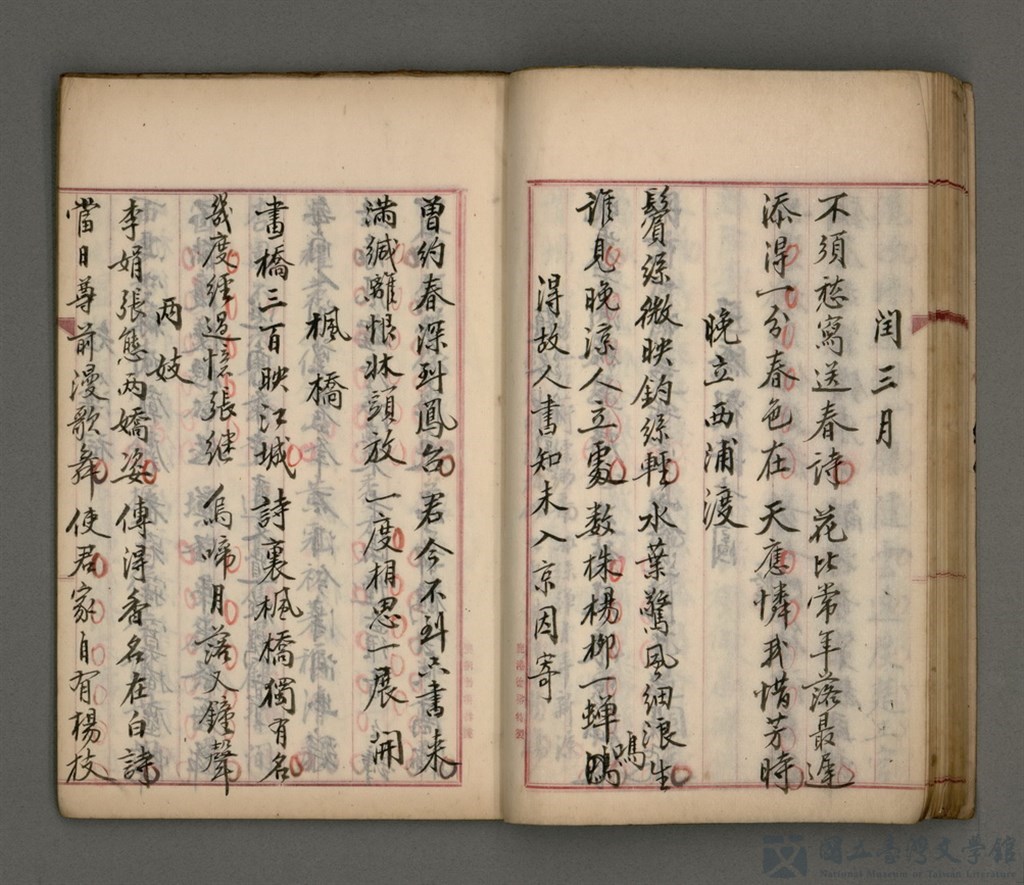 閏三月
不須愁寫送春詩 花比常年落最遲
添得一分春色在 天應憐我惜芳時
晚立西浦渡
鬢絲微映釣絲輕 水葉驚風細浪生
誰見晚涼人立處 數株楊柳一蟬鳴
得故人書知未入京因寄
曾約春深到鳳台 君今不到只書来
滿緘離恨牀頭放 一度相思一展開
楓橋
畫橋三百映江城 詩裏楓橋獨有名
幾度經過憶張継 烏啼月落又鐘聲
两妓
李娟張態两嬌姿 傳得香名在白詩
當日尊前漫歌舞 使君家自有楊枝
國立臺灣文學館
National Museum of Taiwan Literature